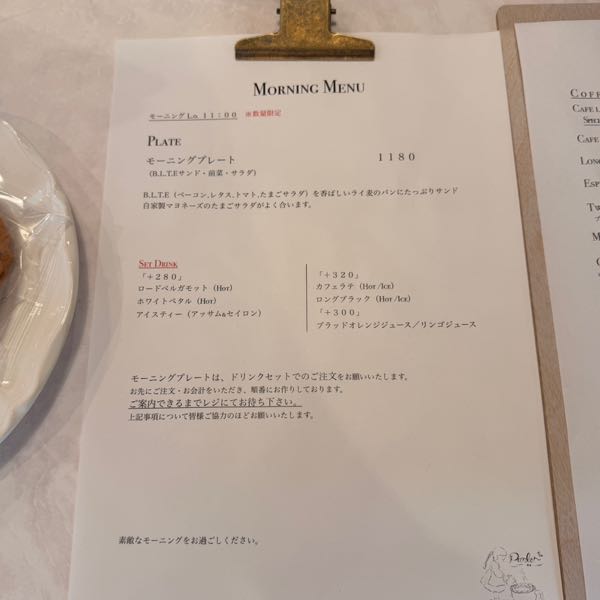 MORNING MENU
モーニング Lo. 11:00 ※数量限定
PLATE
モーニングプレート 1180
(B.L.T.Eサンド・前菜・サラダ)
B.L.T.E(ベーコン,レタス,トマト,たまごサラダ)を香ばしいライ麦のパンにたっぷりサンド
自家製マヨネーズのたまごサラダがよく合います。
SET DRINK
「+280」
ロードベルガモット(HOT)
ホワイトペタル(HOT)
アイスティー(アッサム&セイロン)
「+320」
カフェラテ(HOT /ICE)
ロングブラック(HOT /ICE)
「+300」
ブラッドオレンジジュース/リンゴジュース
モーニングプレートは、ドリンクセットでのご注文をお願いいたします。
お先にご注文・お会計をいただき、順番にお作りしております。
ご案内できるまでレジにてお待ち下さい。
上記事項について皆様ご協力のほどお願いいたします。
素敵なモーニングをお過ごしください。
CAFE